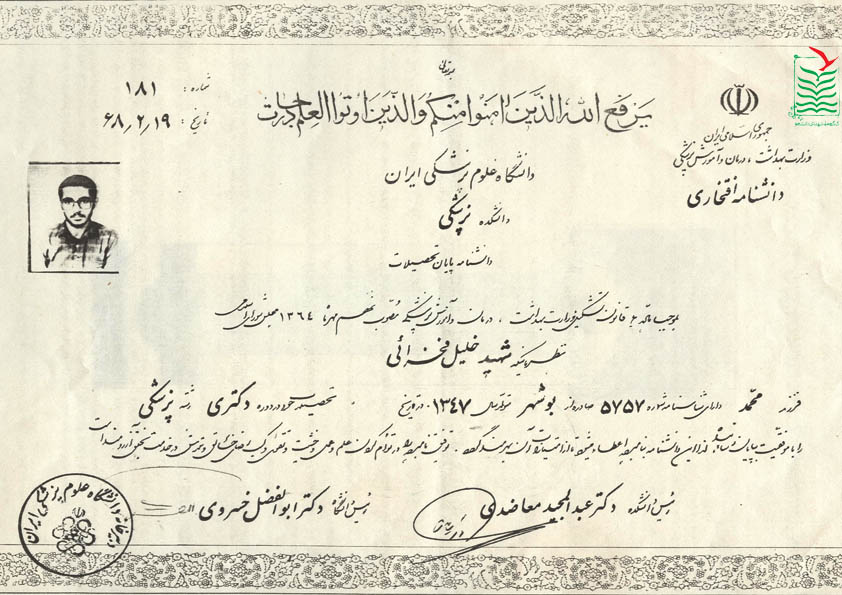 بسمه تعالی
یرفع الله الذین ءامنوا منکم والذین اوتوا العلم درجات
شماره: ۱۸۱
تاریخ: ۶۸/۲/۱۹
جمهوری اسلامی ایران
وزارت بهداشت، درمان و آموزش پزشکی
دانشنامه افتخاری
دانشگاه علوم پزشکی ایران
دانشکده پزشکی
دانشنامه پایان تحصیلات
بموجب ماده قانون تشکیل وزارت بهداشت، درمان و آموزش پزشکی مصوب نهم مهرماه ۱۳۶۴ مجلس شورای اسلامی
نظر باینکه شهید خلیل فخرائی
فرزند محمد دارای شناسنامه شماره ۵۷۵۷ صادره از بوشهر متولد سال ۱۳۴۷ در تاریخ تحصیلات خود را در دوره دکتری رشته پزشکی
را با موفقیت بپایان رسانید لذا این دانشنامه اعطاء میشود از امتیازات آن بهره‌مند گردد
رئیس دانشکده دکتر عبدالمجید معاضدی
رئیس دانشگاه دکتر ابوالفضل خسروی
دانشگاه علوم پزشکی ایران